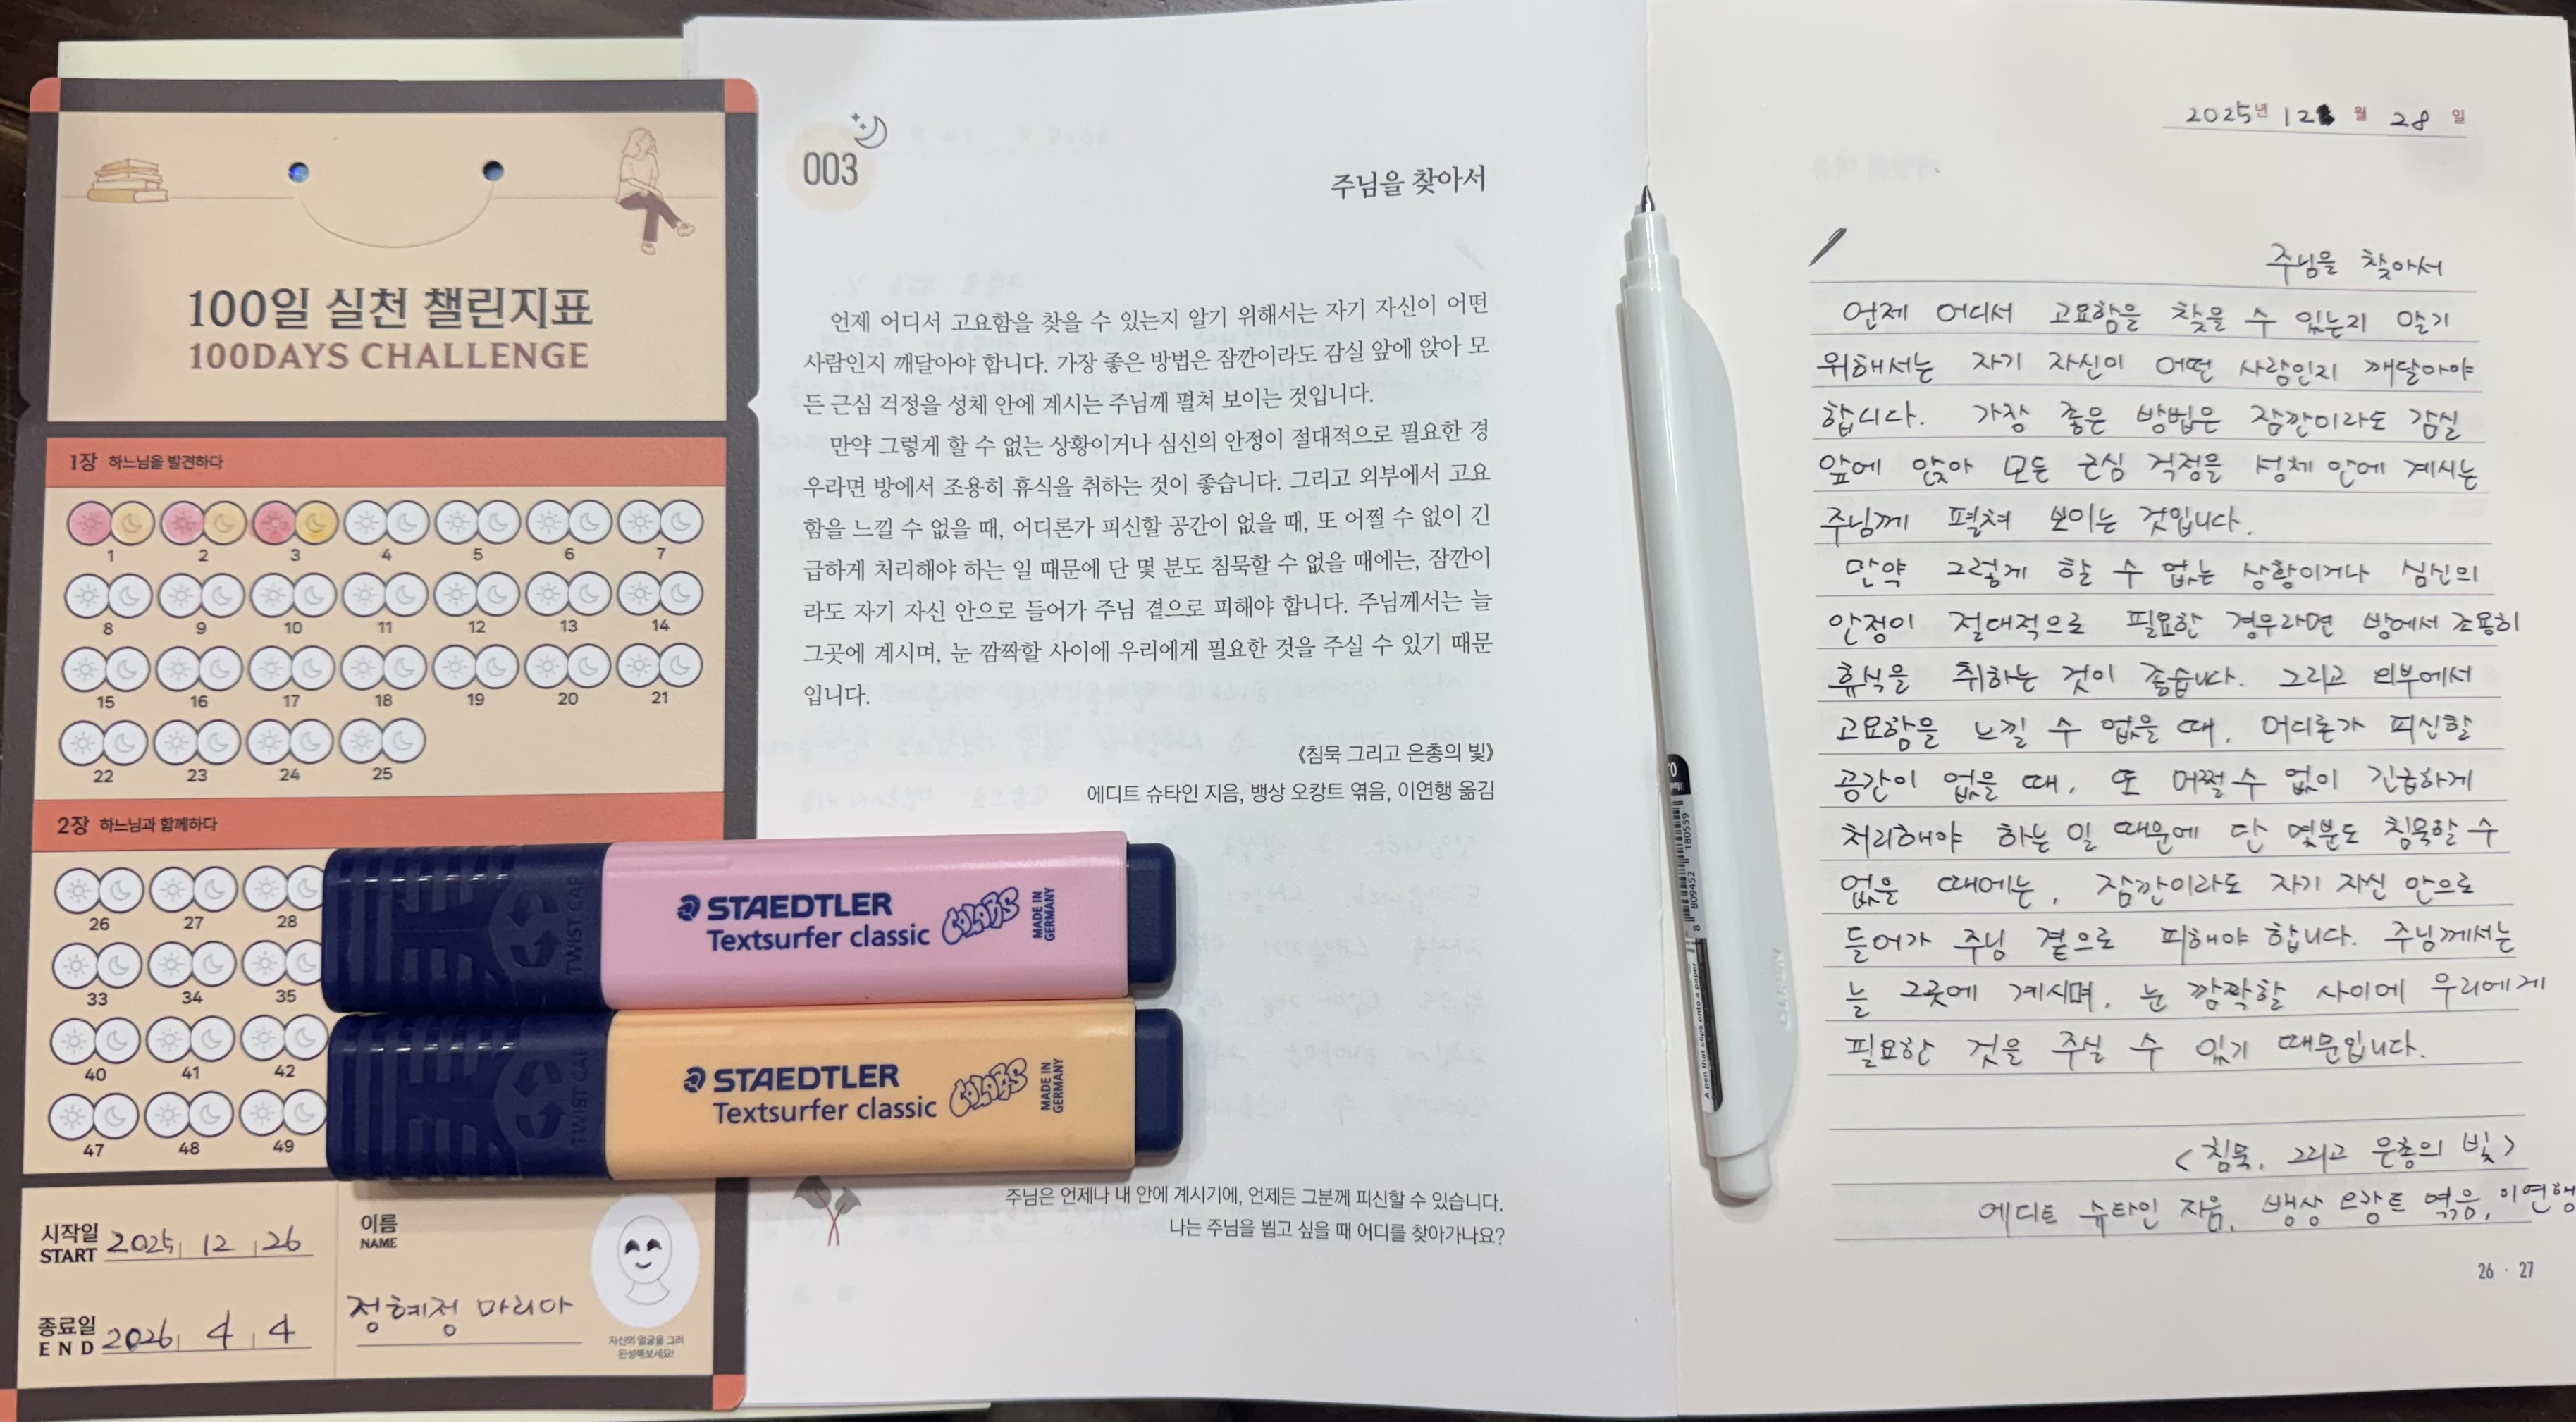 100일 실천 챌린지표
100DAYS CHALLENGE
1장 하느님을 발견하다
1 2 3 4 5 6 7
8 9 10 11 12 13 14
15 16 17 18 19 20 21
22 23 24 25
2장 하느님과 함께하다
26 27 28
33 34 35
40 41 42
47 48 49
시작일
START 2025 12 26
종료일
END 2026 4 4
이름
NAME
정혜정 마리아
자신의 얼굴을 그려
완성해보세요!
TWIST CAP
STAEDTLER
Textsurfer classic
COLORS
MADE IN
GERMANY
TWIST CAP
STAEDTLER
Textsurfer classic
COLORS
MADE IN
GERMANY
003
주님을 찾아서
언제 어디서 고요함을 찾을 수 있는지 알기 위해서는 자기 자신이 어떤
사람인지 깨달아야 합니다. 가장 좋은 방법은 잠깐이라도 감실 앞에 앉아 모
든 근심 걱정을 성체 안에 계시는 주님께 펼쳐 보이는 것입니다.
만약 그렇게 할 수 없는 상황이거나 심신의 안정이 절대적으로 필요한 경
우라면 방에서 조용히 휴식을 취하는 것이 좋습니다. 그리고 외부에서 고요
함을 느낄 수 없을 때, 어디론가 피신할 공간이 없을 때, 또 어쩔 수 없이 긴
급하게 처리해야 하는 일 때문에 단 몇 분도 침묵할 수 없을 때에는, 잠깐이
라도 자기 자신 안으로 들어가 주님 곁으로 피해야 합니다. 주님께서는 늘
그곳에 계시며, 눈 깜짝할 사이에 우리에게 필요한 것을 주실 수 있기 때문
입니다.
《침묵 그리고 은총의 빛》
에디트 슈타인 지음, 뱅상 오캉트 엮음, 이연행 옮김
주님은 언제나 내 안에 계시기에, 언제든 그분께 피신할 수 있습니다.
나는 주님을 뵙고 싶을 때 어디를 찾아가나요?
A pen that clips onto a paper
8 809452 180559
2025년 12월 28일
주님을 찾아서
언제 어디서 고요함을 찾을 수 있는지 알기
위해서는 자기 자신이 어떤 사람인지 깨달아야
합니다. 가장 좋은 방법은 잠깐이라도 감실
앞에 앉아 모든 근심 걱정을 성체 안에 계시는
주님께 펼쳐 보이는 것입니다.
만약 그렇게 할 수 없는 상황이거나 심신의
안정이 절대적으로 필요한 경우라면 방에서 조용히
휴식을 취하는 것이 좋습니다. 그리고 외부에서
고요함을 느낄 수 없을 때, 어디론가 피신할
공간이 없을 때, 또 어쩔 수 없이 긴급하게
처리해야 하는 일 때문에 단 몇분도 침묵할 수
없을 때에는, 잠깐이라도 자기 자신 안으로
들어가 주님 곁으로 피해야 합니다. 주님께서는
늘 그곳에 계시며, 눈 깜짝할 사이에 우리에게
필요한 것을 주실 수 있기 때문입니다.
<침묵, 그리고 은총의 빛>
에디트 슈타인 지음, 뱅상 오캉트 엮음, 이연행
26 · 27